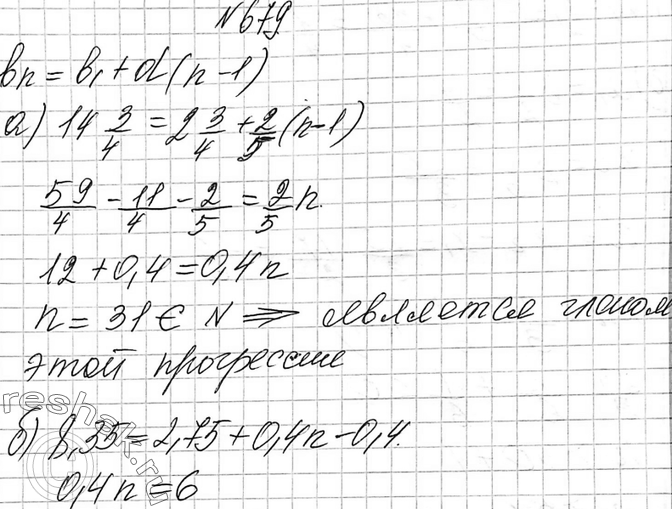 №679
bn = b1 + d(n-1)
а) 14 3/4 = 2 3/4 + 2/5 (n-1)
59/4 - 11/4 - 2/5 = 2/5 n
12 + 0,4 = 0,4n
n = 31 ∈ N ⇒ является членом
этой прогрессии
б) 8,35 = 2,75 + 0,4n - 0,4.
0,4n = 6
reshak.ru